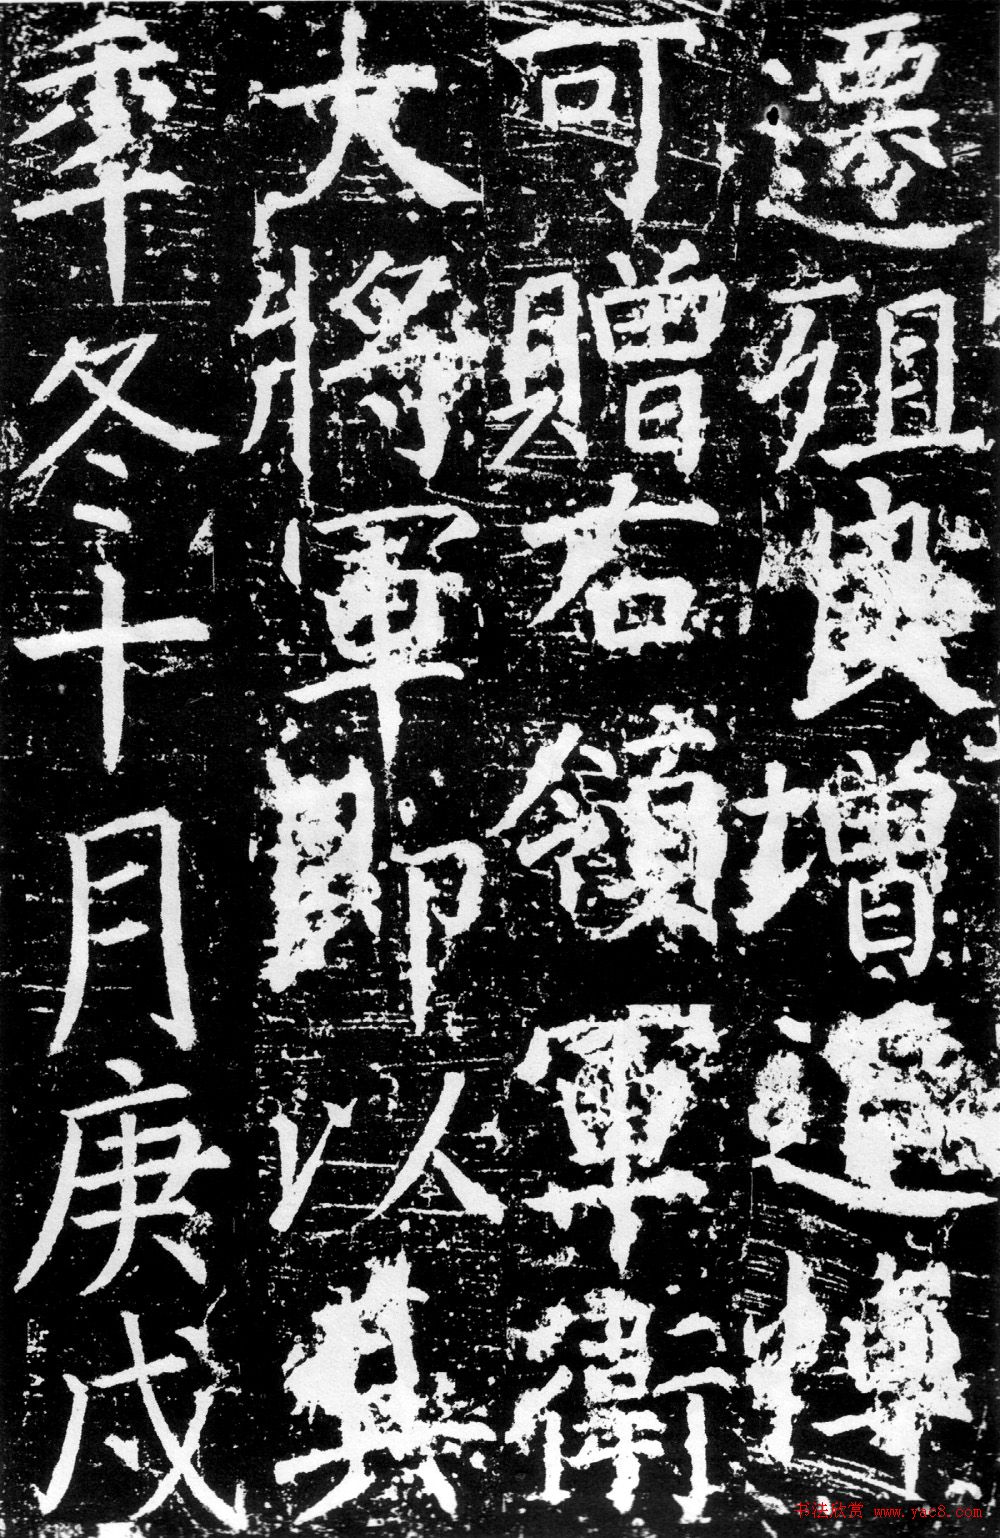 遷殂良增追悼
可贈右領軍衛
大將軍即以其
年冬十月庚戌
书法欣赏 www.yac8.com